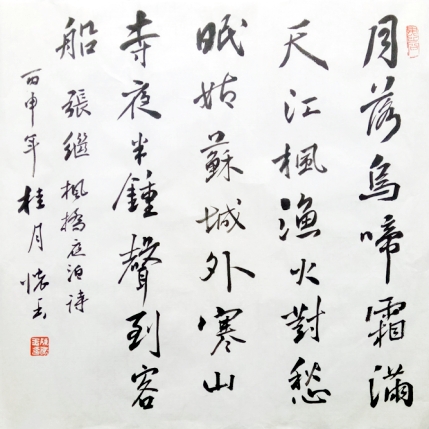 月落烏啼霜滿
天江楓漁火對愁
眠姑蘇城外寒山
寺夜半鍾聲到客
船 張繼楓橋夜泊詩
丙申年桂月懷